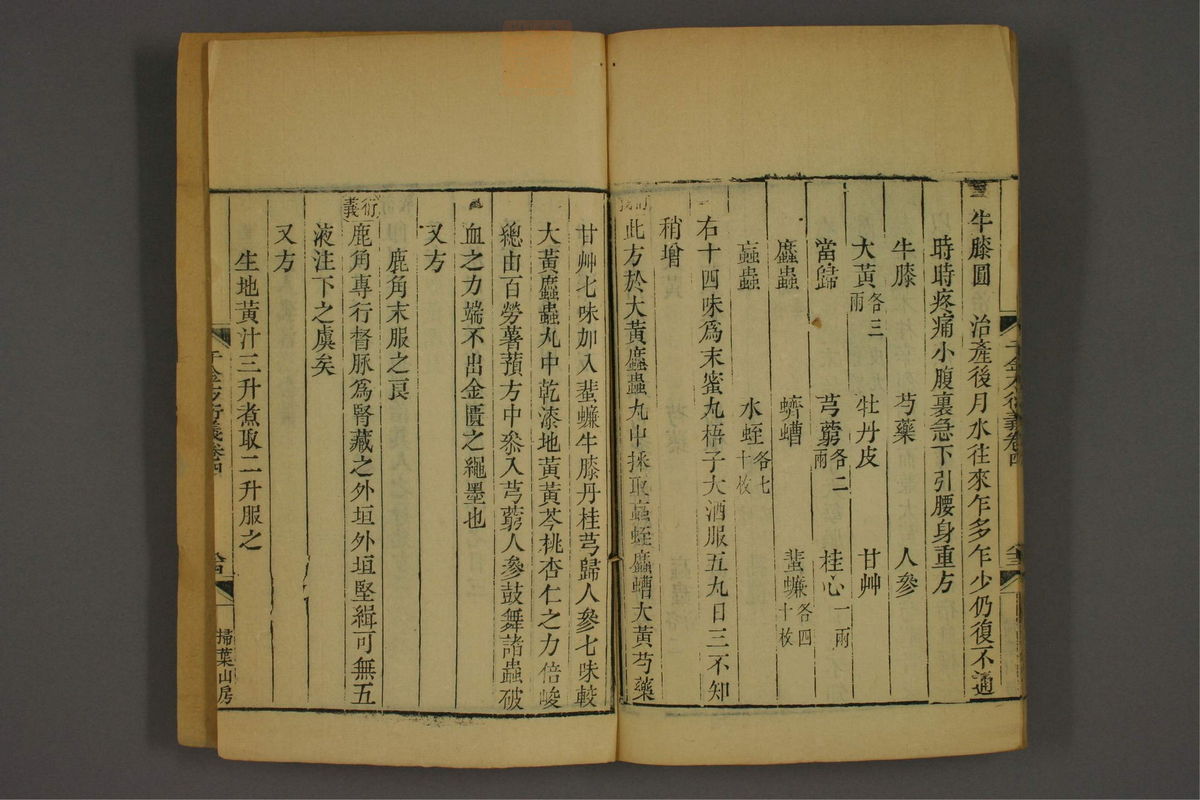 牛膝圓 治產後月水往來乍多乍少仍復不通
時時疼痛小腹裏急下引腰身重方
牛膝 芍藥 人參
大黃各三兩 牡丹皮 甘艸
當歸 芎藭各二兩 桂心一兩
䗪蟲 蠐螬 蜚蠊各四十枚
蝱蟲 水蛭各七十枚
右十四味爲末蜜丸梧子大酒服五丸日三不知
稍增
衍義
此方於大黃䗪蟲丸中採取蝱蛭䗪螬大黃芍藥
甘艸七味加入蜚蠊牛膝丹桂芎歸人參七味較
大黃䗪蟲丸中乾漆地黃黃芩桃杏仁之力倍峻
總由百勞薯蕷方中叅入芎藭人參鼓舞諸蟲破
血之力端不出金匱之繩墨也
又方
鹿角末服之良
衍義
鹿角專行督脉爲腎藏之外垣外垣堅緝可無五
液注下之虞矣
又方
生地黃汁三升煮取二升服之
千金方衍義卷四
掃葉山房